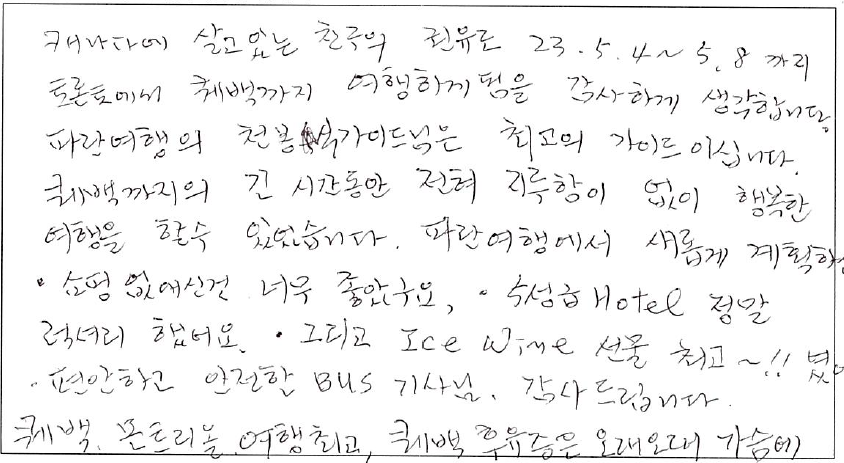 캐나다에 살고있는 친구의 권유로 23.5.4~5.8 까지
토론토에서 퀘백까지 여행하게 됨을 감사하게 생각합니다.
파란여행의 천봉 가이드님은 최고의 가이드이십니다.
퀘백까지의 긴 시간동안 전혀 지루함이 없이 행복한
여행을 할수 있었습니다. 파란여행에서 새롭게 계획하신
· 쇼핑 없애신건 너무 좋았구요, · 수성급 Hotel 정말
럭셔리 했어요. · 그리고 Ice Wine 선물 최고~!!
· 편안하고 안전한 BUS 기사님, 감사드립니다.
퀘백, 몬트리올 여행최고, 퀘백 후유증은 오래오래 가슴에